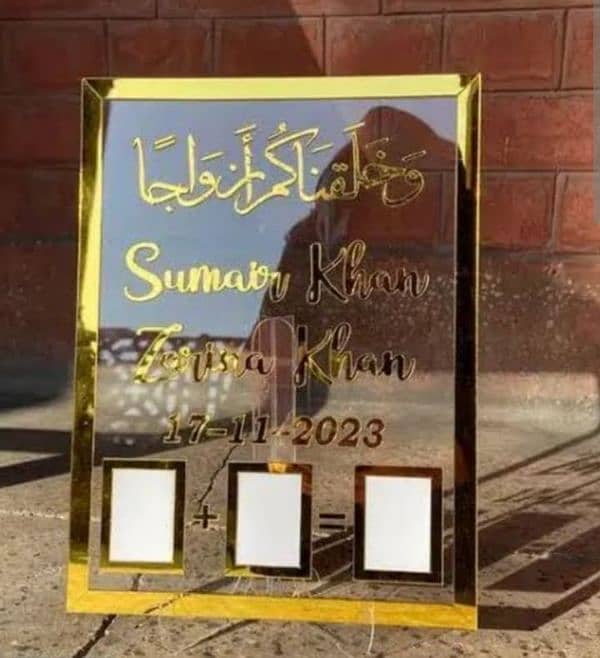 وَخَلَقنَاكُم أَزوَاجًا
Sumair Khan
Zarina Khan
17-11-2023
+ =